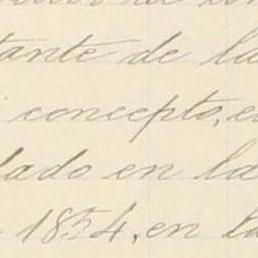 tante de la
concepto, e
lado en la
1854, en la